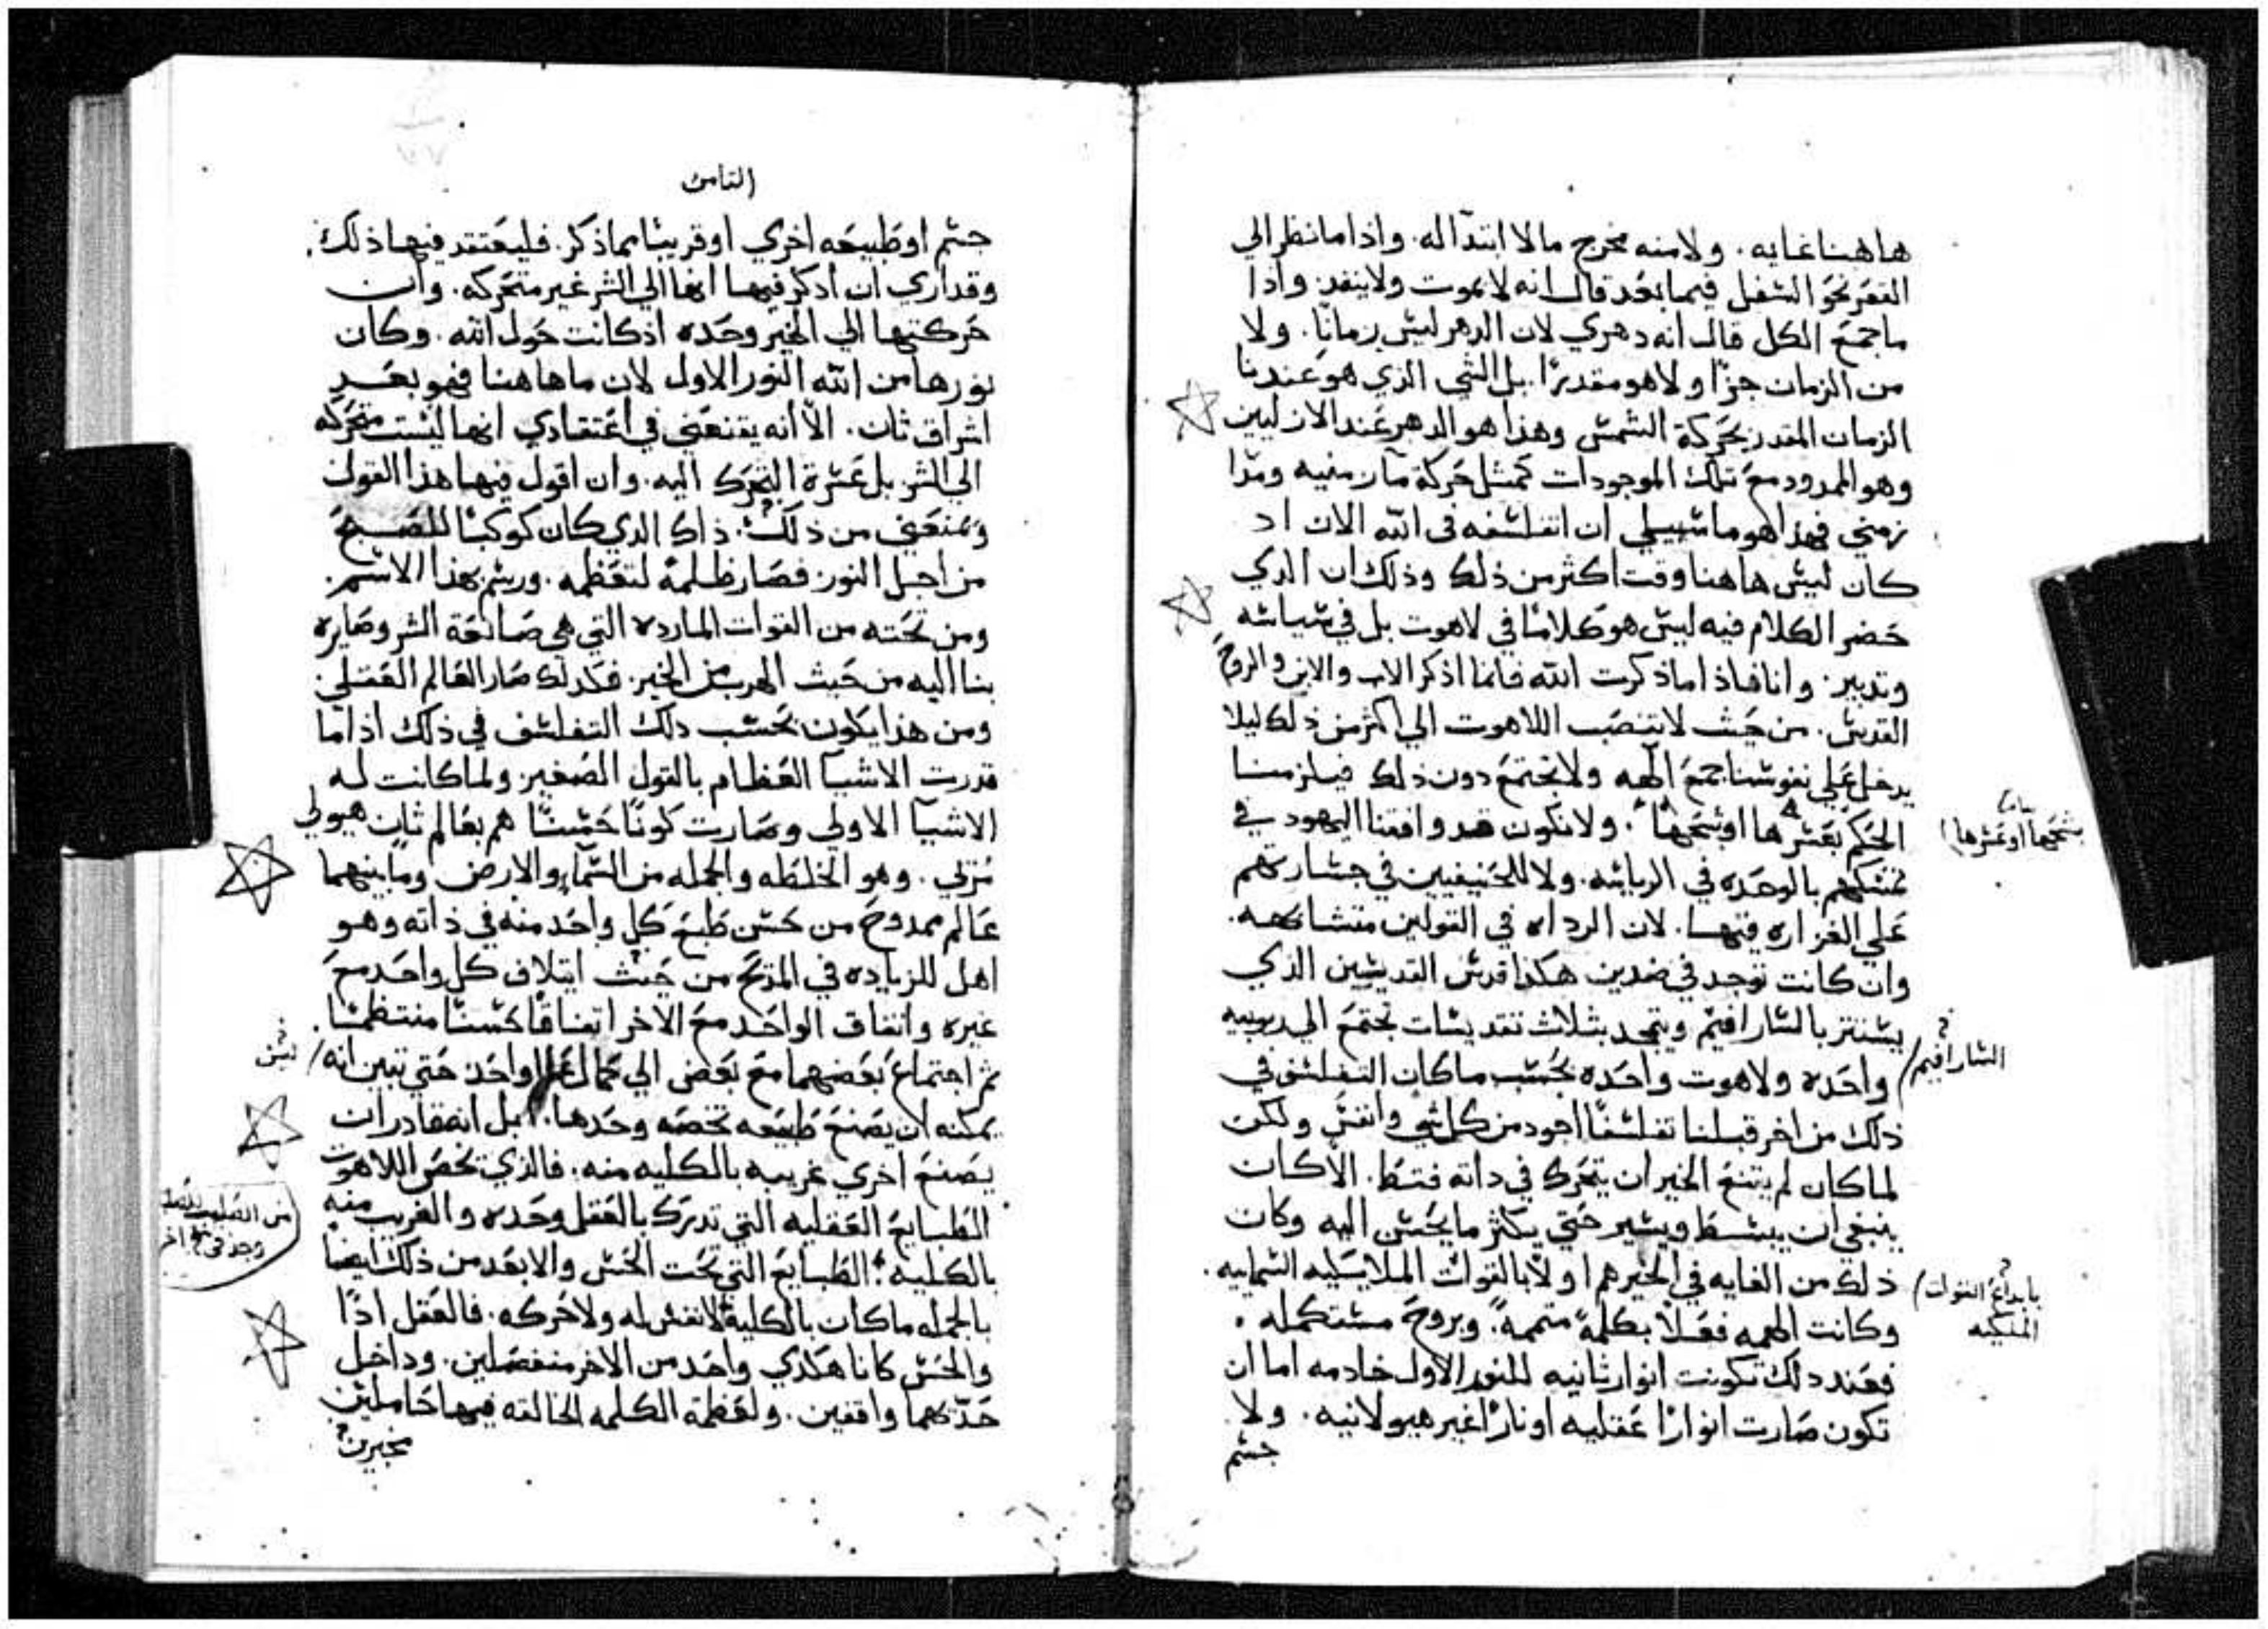 هاهنا غايه. ولا منه مخرج ما لا ابتدآ له. واذا ما نظر الي
القعر نحو السفل فيما بعد قال انه لا يموت ولا ينفد. واذا
ما جمع الكل قال انه دهري لان الدهر ليس زمانًا. ولا
من الزمان جزًا ولا هو مقدرًا. بل الشي الذي هو عندنا
الزمان المقدر بحركة الشمس وهذا هو الدهر عند الازليين
وهو الممدود مع تلك الموجودات كمثل حركة ما زمنيه ومدا
زمني فهذا هو ما سبيلي ان اتفلسفه في الله الان اد
كان ليس هاهنا وقت اكثر من ذلك وذلك ان الدي
حضر الكلام فيه ليس هو كلامًا في لاهوت بل في سياسه
وتدبير. وانا فاذا ما ذكرت الله فانما اذكر الاب والابن والروح
القدس. من حيث لا ينصب اللاهوت الي اكثر من ذلك ليلا
يدخل علي نفوسنا جمع الهه ولا يجتمع دون ذلك فيلزمنا
الحكم بفقرها او شحها. ولا نكون قد وافقنا اليهود في
تمسكهم بالوحده في الرياسه. ولا للحنيفيين في جسارتهم
علي الغزاره فيها. لان الرداه في القولين متشابهه.
وان كانت توجد في ضدين هكذا قدس القديسين الذي
يستتر بالسارافيم ويتمجد بثلاث تقديسات تجتمع الي ربوبيه
واحده ولاهوت واحده بحسب ما كان التفلسف في
ذلك من اخر قبلنا تفلسفًا اجود من كل شي وانفس ولكن
لما كان لم يقنع الخير ان يتحرك في داته فقط. الا كان
ينبغي ان يبسط ويسير حتي يكثر ما يحسن اليه وكان
ذلك من الغايه في الخير هم اولًا بالقوات الملايكيه السمايیه.
وكانت الهمه فعلًا بكلمةٍ متممةً. وبروح مستكمله.
فعند دلك تكونت انوار ثانيه للنور الاول خادمه اما ان
تكون صارت انوارًا عقليه او نارًا غير هيولانيه. ولا
جسم
السارافيم
بابداع القوات
الملكيه
الثامن
جسم او طبيعه اخري او قريبًا مما ذكر. فليعتقد فيها ذلك.
وقد اري ان ادكر فيها انها الي الشر غير متحركه. وان
حركتها الي الخير وحده اذ كانت حول الله. وكان
نورها من الله النور الاول لان ما هاهنا فهو بعد
اشراق ثان. الا انه يقنعني في اعتقادي انها ليست متحركه
الي الشر بل عسرة التحرك اليه. وان اقول فيها هذا القول
ويمنعني من ذلك. ذاك الدي كان كوكبًا للصبح
من اجل النور. فصار ظلمة لتعظمه. ورسم بهذا الاسم.
ومن تحته من القوات المارده التي هي صانعة الشر وصايره
بنا اليه من حيث الهرب من الخير. فكدلك صار العالم العقلي
ومن هذا يكون بحسب دلك التفلسف في ذلك اذا ما
قدرت الاشيآ العظام بالقول الصغير ولما كانت له
الاشيآ الاولي وصارت كونًا حسنًا هم بعالم ثان هيولي
مُرئي. وهو الخلطه والجمله من السمآء والارض وما بينهما
عالم ممدوح من حسن طبع كل واحد منه في ذاته وهو
اهل للزياده في المدح من حيث ايتلاف كل واحد مع
غيره واتفاق الواحد مع الاخر اتفاقًا حسنًا منتظمًا.
ثم اجتماع بعضهما مع بعض الي كمال واحد حتي تبين انه
ليس
يمكنه ان يصنع طبيعه تخصه وحدها. بل انه قادر ان
يصنع اخري غريبه بالكليه منه. فالذي تخص اللاهوت
الطبايع العقليه التي تدرك بالعقل وحده والغريب منه
بالكليه. الطبايع التي تحت الحس والابعد من ذلك ايضًا
بالجمله ما كان بالكلية لا نفس له ولا حركه. فالعقل اذًا
والحس كانا هكذي واحد من الاخر منفصلين. وداخل
حدّتهما واقفين. ولعظمة الكلمه الخالقه فيهما حاملين
مخبرين